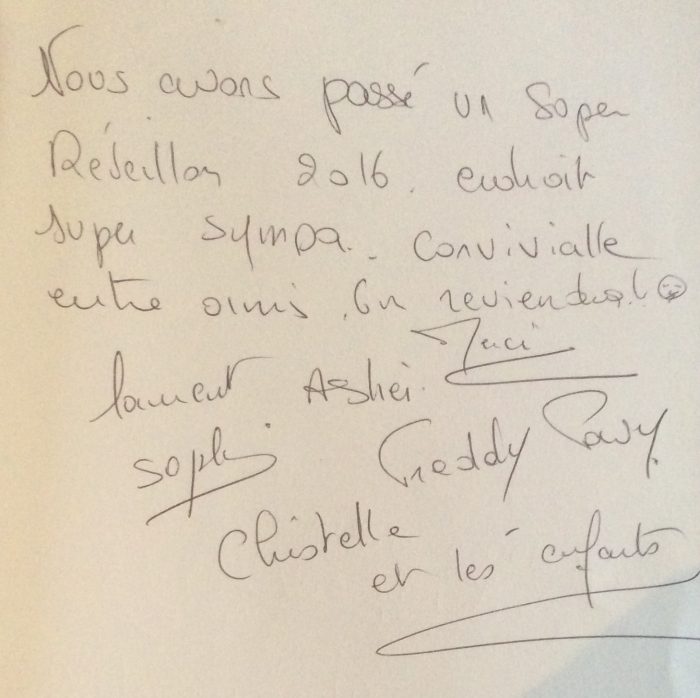 Nous avons passé un Soper
Réveillon 2016. endroit
super sympa. Convivialle
entre amis. On reviendra!
Merci
laurent
Sophie Freddy
Christelle
et les enfants